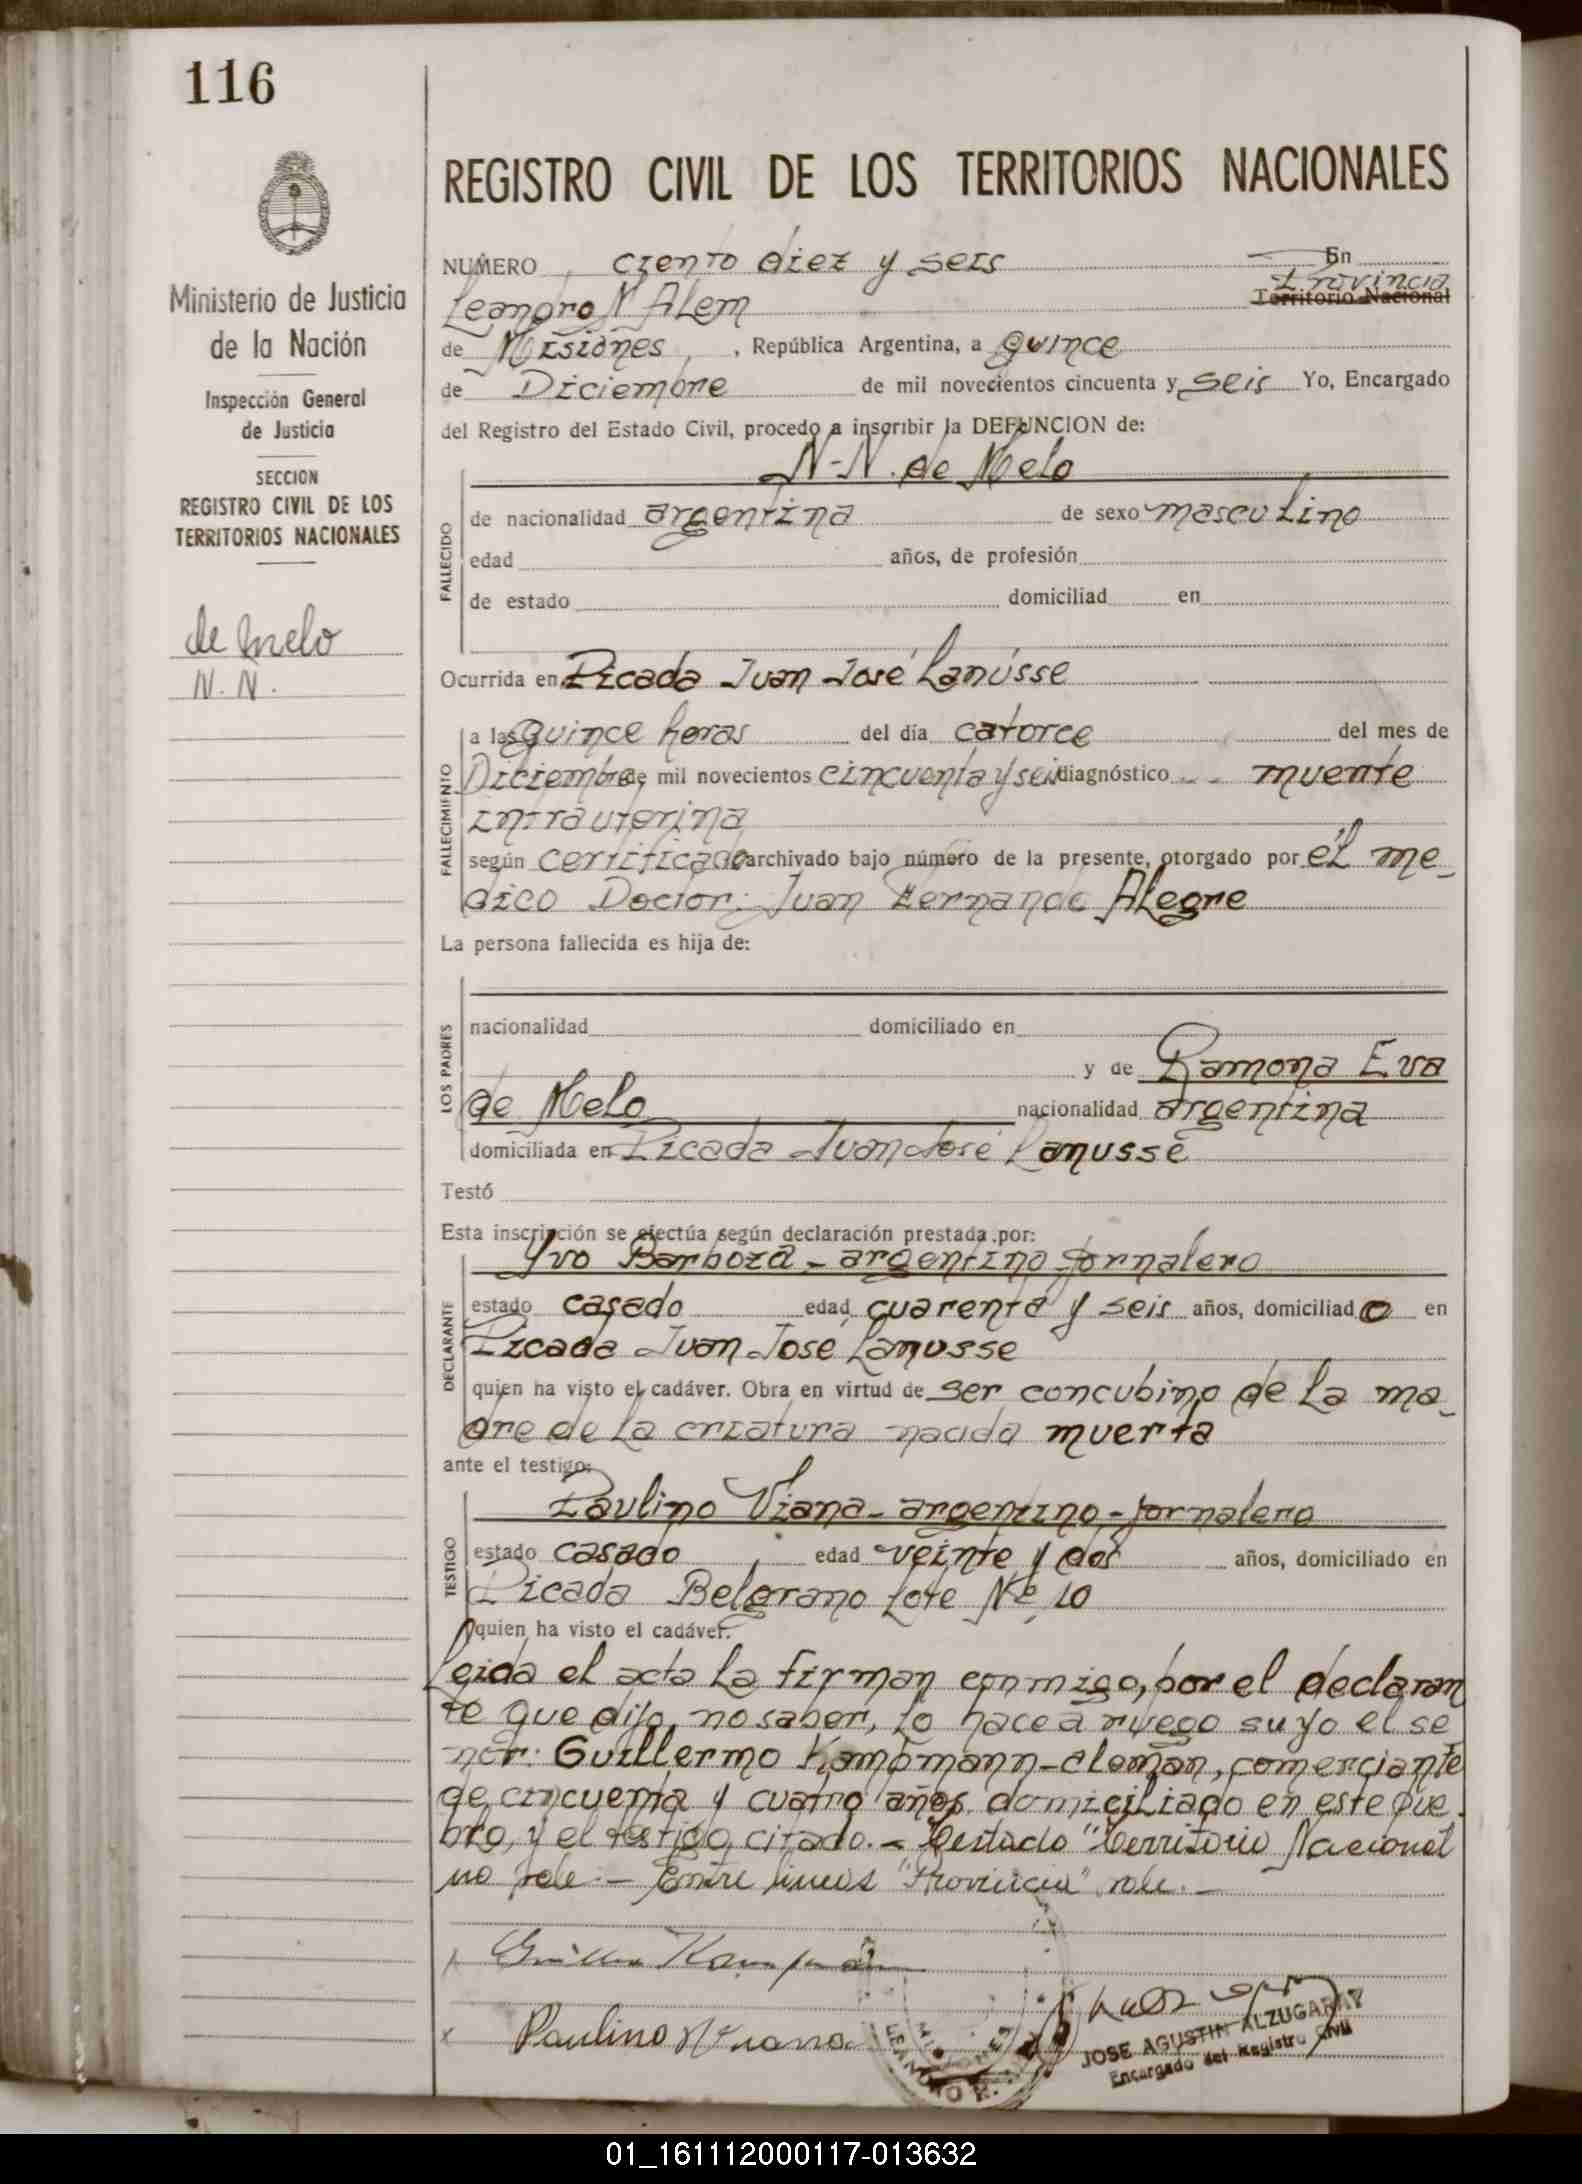 116
REGISTRO CIVIL DE LOS TERRITORIOS NACIONALES
Ministerio de Justicia
de la Nación
Inspección General
de Justicia
SECCION
REGISTRO CIVIL DE LOS
TERRITORIOS NACIONALES
de Melo
N. N.
NUMERO ciento diez y seis En
Leandro N Alem Provincia Territorio Nacional
de Misiones, , República Argentina, a quince
de Diciembre de mil novecientos cincuenta y seis Yo, Encargado
del Registro del Estado Civil, procedo a inscribir la DEFUNCION de:
N-N. de Melo
FALLECIDO
de nacionalidad argentina de sexo masculino
edad años, de profesión
de estado domiciliad en
Ocurrida en Picada Juan José Lanússe
FALLECIMIENTO
a las quince horas del día catorce del mes de
Diciembre de mil novecientos cincuenta y seis diagnóstico muente
intrauterina
según certificado archivado bajo número de la presente, otorgado por él me-
dico Doctor: Juan Fernando Alegre
La persona fallecida es hija de:
LOS PADRES
nacionalidad domiciliado en
y de Ramona Eva
de Melo nacionalidad argentina
domiciliada en Picada Juan José Lanusse
Testó
Esta inscripción se efectúa según declaración prestada por:
DECLARANTE
Yvo Barboza - argentino - jornalero
estado casado edad cuarenta y seis años, domiciliado en
Picada Juan José Lanusse
quien ha visto el cadáver. Obra en virtud de ser concubino de la ma-
dre de la criatura nacida muerta
ante el testigo:
TESTIGO
Paulino Viana - argentino - jornalero
estado casado edad veinte y dos años, domiciliado en
Picada Belgrano Lote Nº 10
quien ha visto el cadáver.
Leida el acta la firman conmigo, por el declaran
te que dijo no saber, lo hace a ruego suyo el se
ñor: Guillermo Kampmann - aleman, comerciante
de cincuenta y cuatro años domiciliado en este pue-
blo, y el testigo citado. - Testado "Territorio Nacional
no vale. - Entre lineas "Provincia" vale. -
Paulino Viana
JOSE AGUSTIN ALZUGARAY
Encargado del Registro Civil
01_161112000117-013632